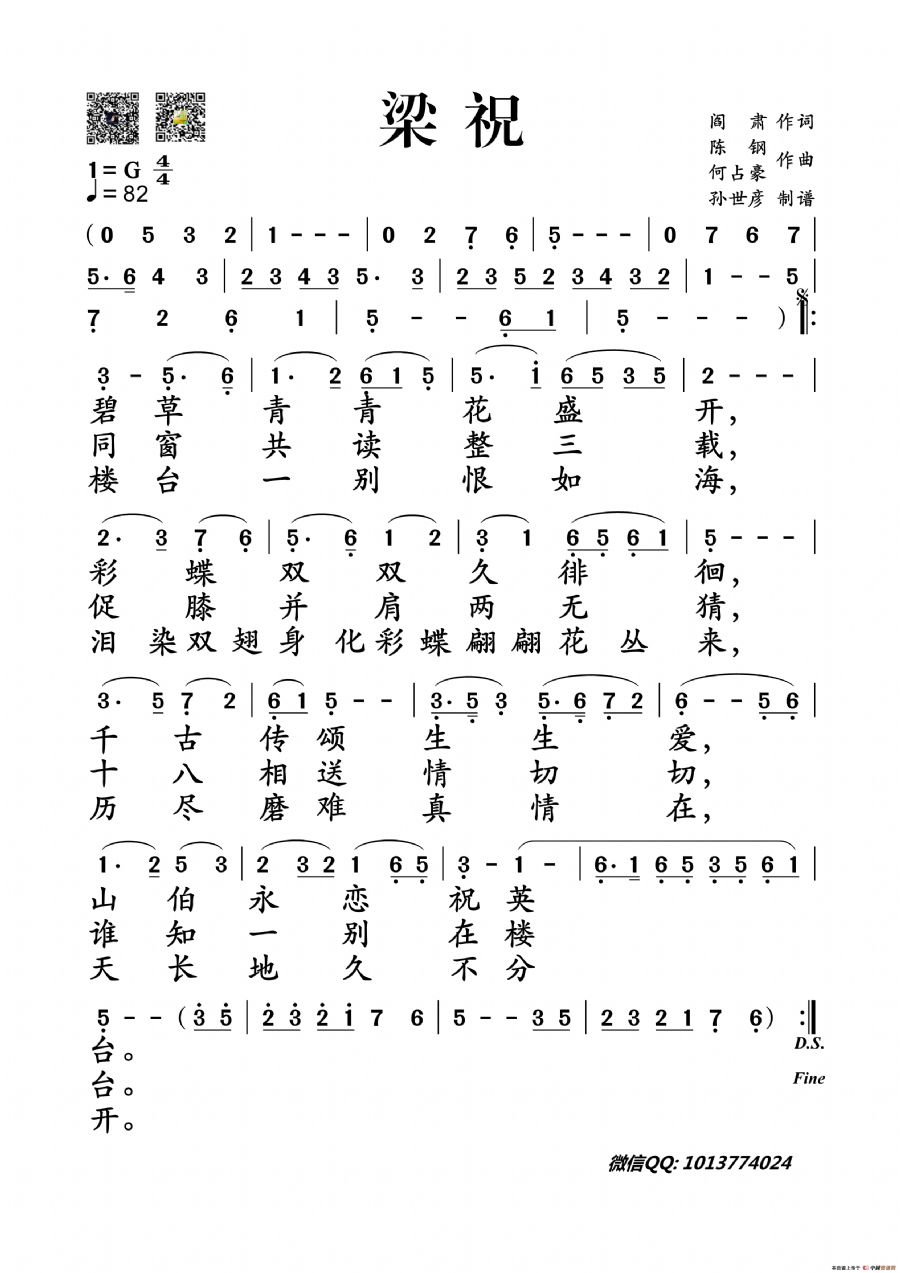 梁祝
阎 肃 作词
陈 钢
何占豪 作曲
孙世彦 制谱
1=G 4/4
♩=82
(0 5 3 2 | 1 - - - | 0 2 7̣ 6̣ | 5̣ - - - | 0 7 6 7 |
5· 6 4 3 | 2 3 4 3 5· 3 | 2 3 5 2 3 4 3 2 | 1 - - 5 |
7̣ 2 6̣ 1 | 5̣ - - 6̣ 1 | 5̣ - - - ) ‖:
3̣ - 5̣· 6̣ | 1· 2 6̣ 1 5̣ | 5· i 6 5 3 5 | 2 - - - |
碧草青青花盛开,
同窗共读整三载,
楼台一别恨如海,
2· 3 7̣ 6̣ | 5̣· 6̣ 1 2 | 3̣ 1 6̣ 5̣ 6̣ 1 | 5̣ - - - |
彩蝶双双久徘徊,
促膝并肩两无猜,
泪染双翅身化彩蝶翩翩花丛来,
3· 5 7̣ 2 | 6̣ 1 5̣ - - | 3̣· 5̣ 3̣ 5̣· 6̣ 7̣ 2 | 6̣ - - 5̣ 6̣ |
千古传颂生生爱,
十八相送情切切,
历尽磨难真情在,
1· 2 5 3 | 2 3 2 1 6̣ 5̣ | 3̣ - 1 - | 6̣· 1 6̣ 5̣ 3̣ 5̣ 6̣ 1 |
山伯永恋祝英
谁知一别在楼
天长地久不分
5̣ - - (3̇ 5̇ | 2̇ 3̇ 2̇ 1̇ 7 6 | 5 - - 3 5 | 2 3 2 1 7̣ 6̣ ) :‖
台。
D.S.
台。
Fine
开。
微信QQ: 1013774024